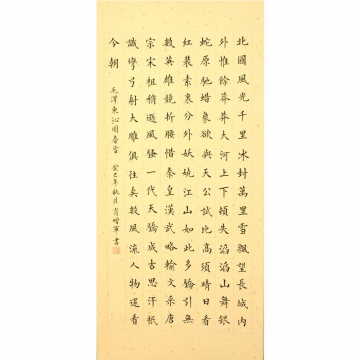 北國風光千里冰封萬里雪飄望長城內
外惟餘莽莽大河上下頓失滔滔山舞銀
蛇原馳蜡象欲與天公試比高須晴日看
紅裝素裹分外妖嬈江山如此多嬌引無
數英雄競折腰惜秦皇漢武略輸文采唐
宗宋祖稍遜風騷一代天驕成吉思汗祇
識彎弓射大雕俱往矣數風流人物還看
今朝
毛澤東沁園春雪 癸巳年秋月肖增軍書